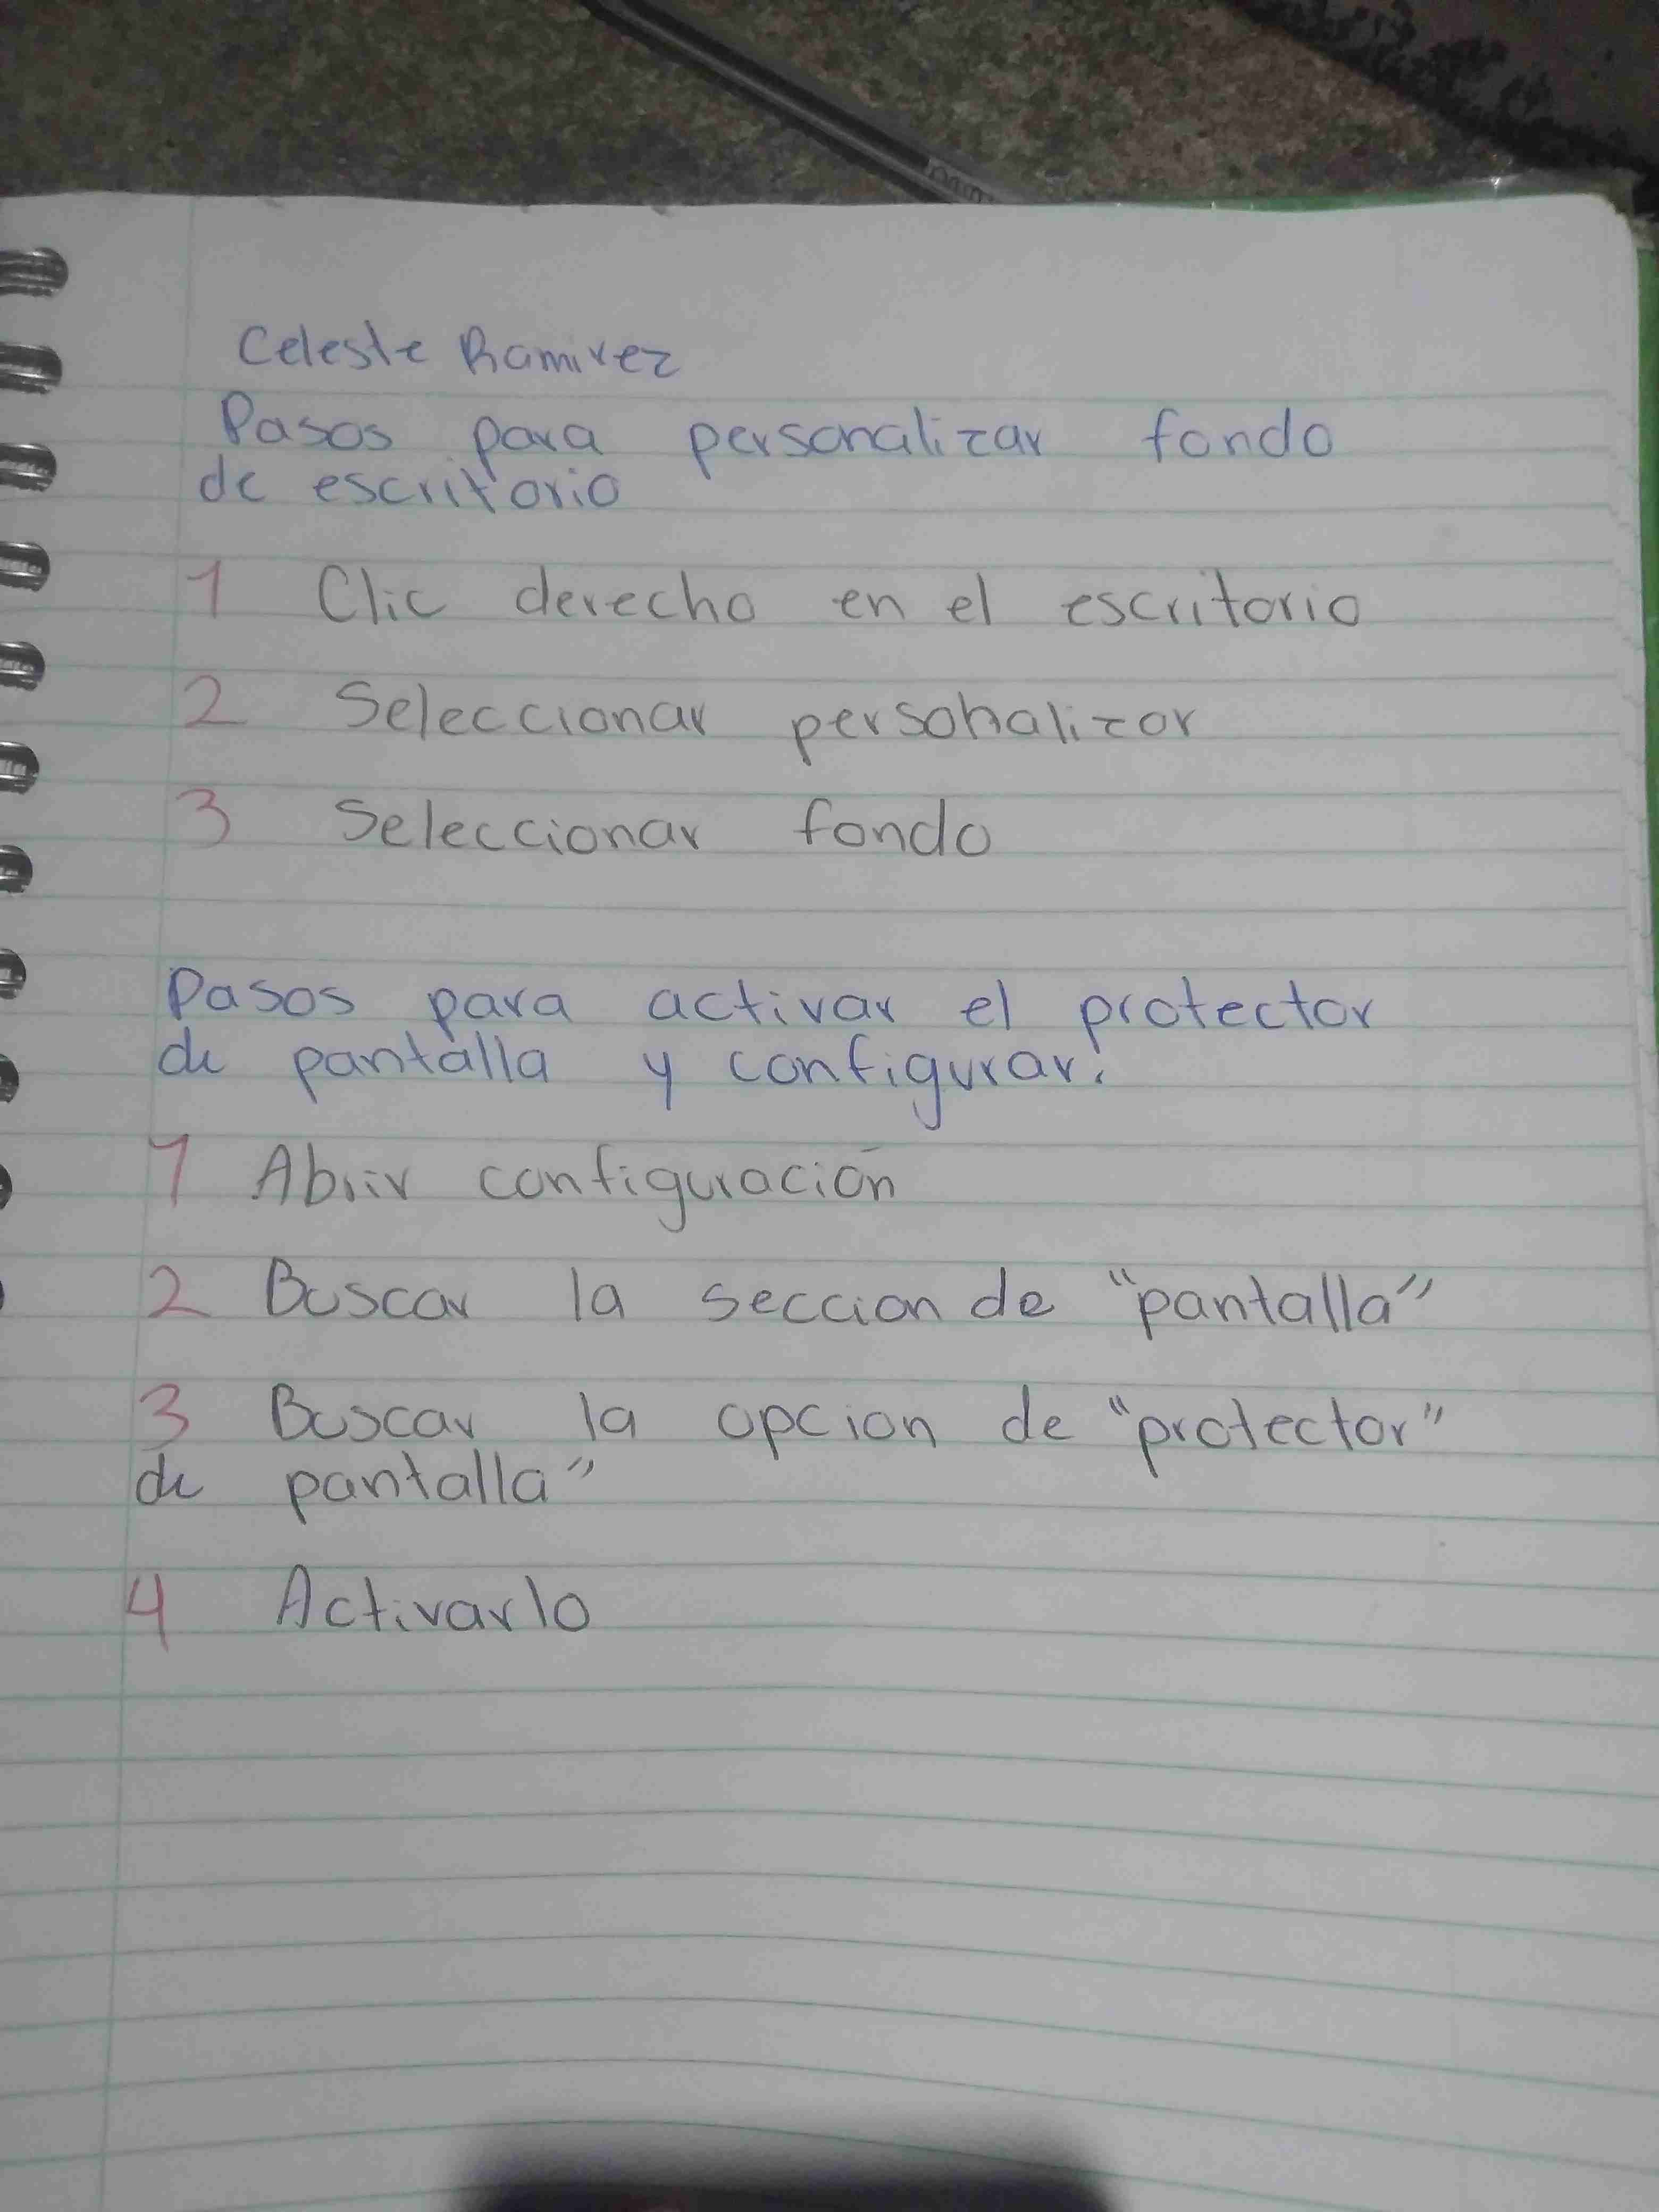 Celeste Ramirez
Pasos para personalizar fondo
de escritorio
1 Clic derecho en el escritorio
2 Seleccionar personalizar
3 Seleccionar fondo
Pasos para activar el protector
de pantalla y configurar:
1 Abrir configuración
2 Buscar la seccion de "pantalla"
3 Buscar la opcion de "protector"
de pantalla"
4 Activarlo